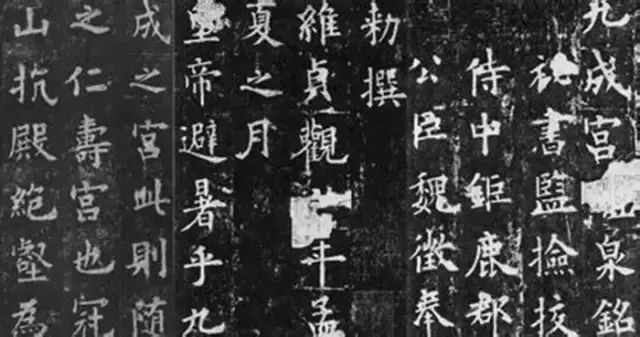 九成宮泉銘
祕書監撿挍
侍中鉅鹿郡
公臣魏徵奉
勑撰
維貞觀年孟
夏之月
皇帝避暑乎九
成之宮此則随
之仁壽宮也冠
山抗殿絕壑為